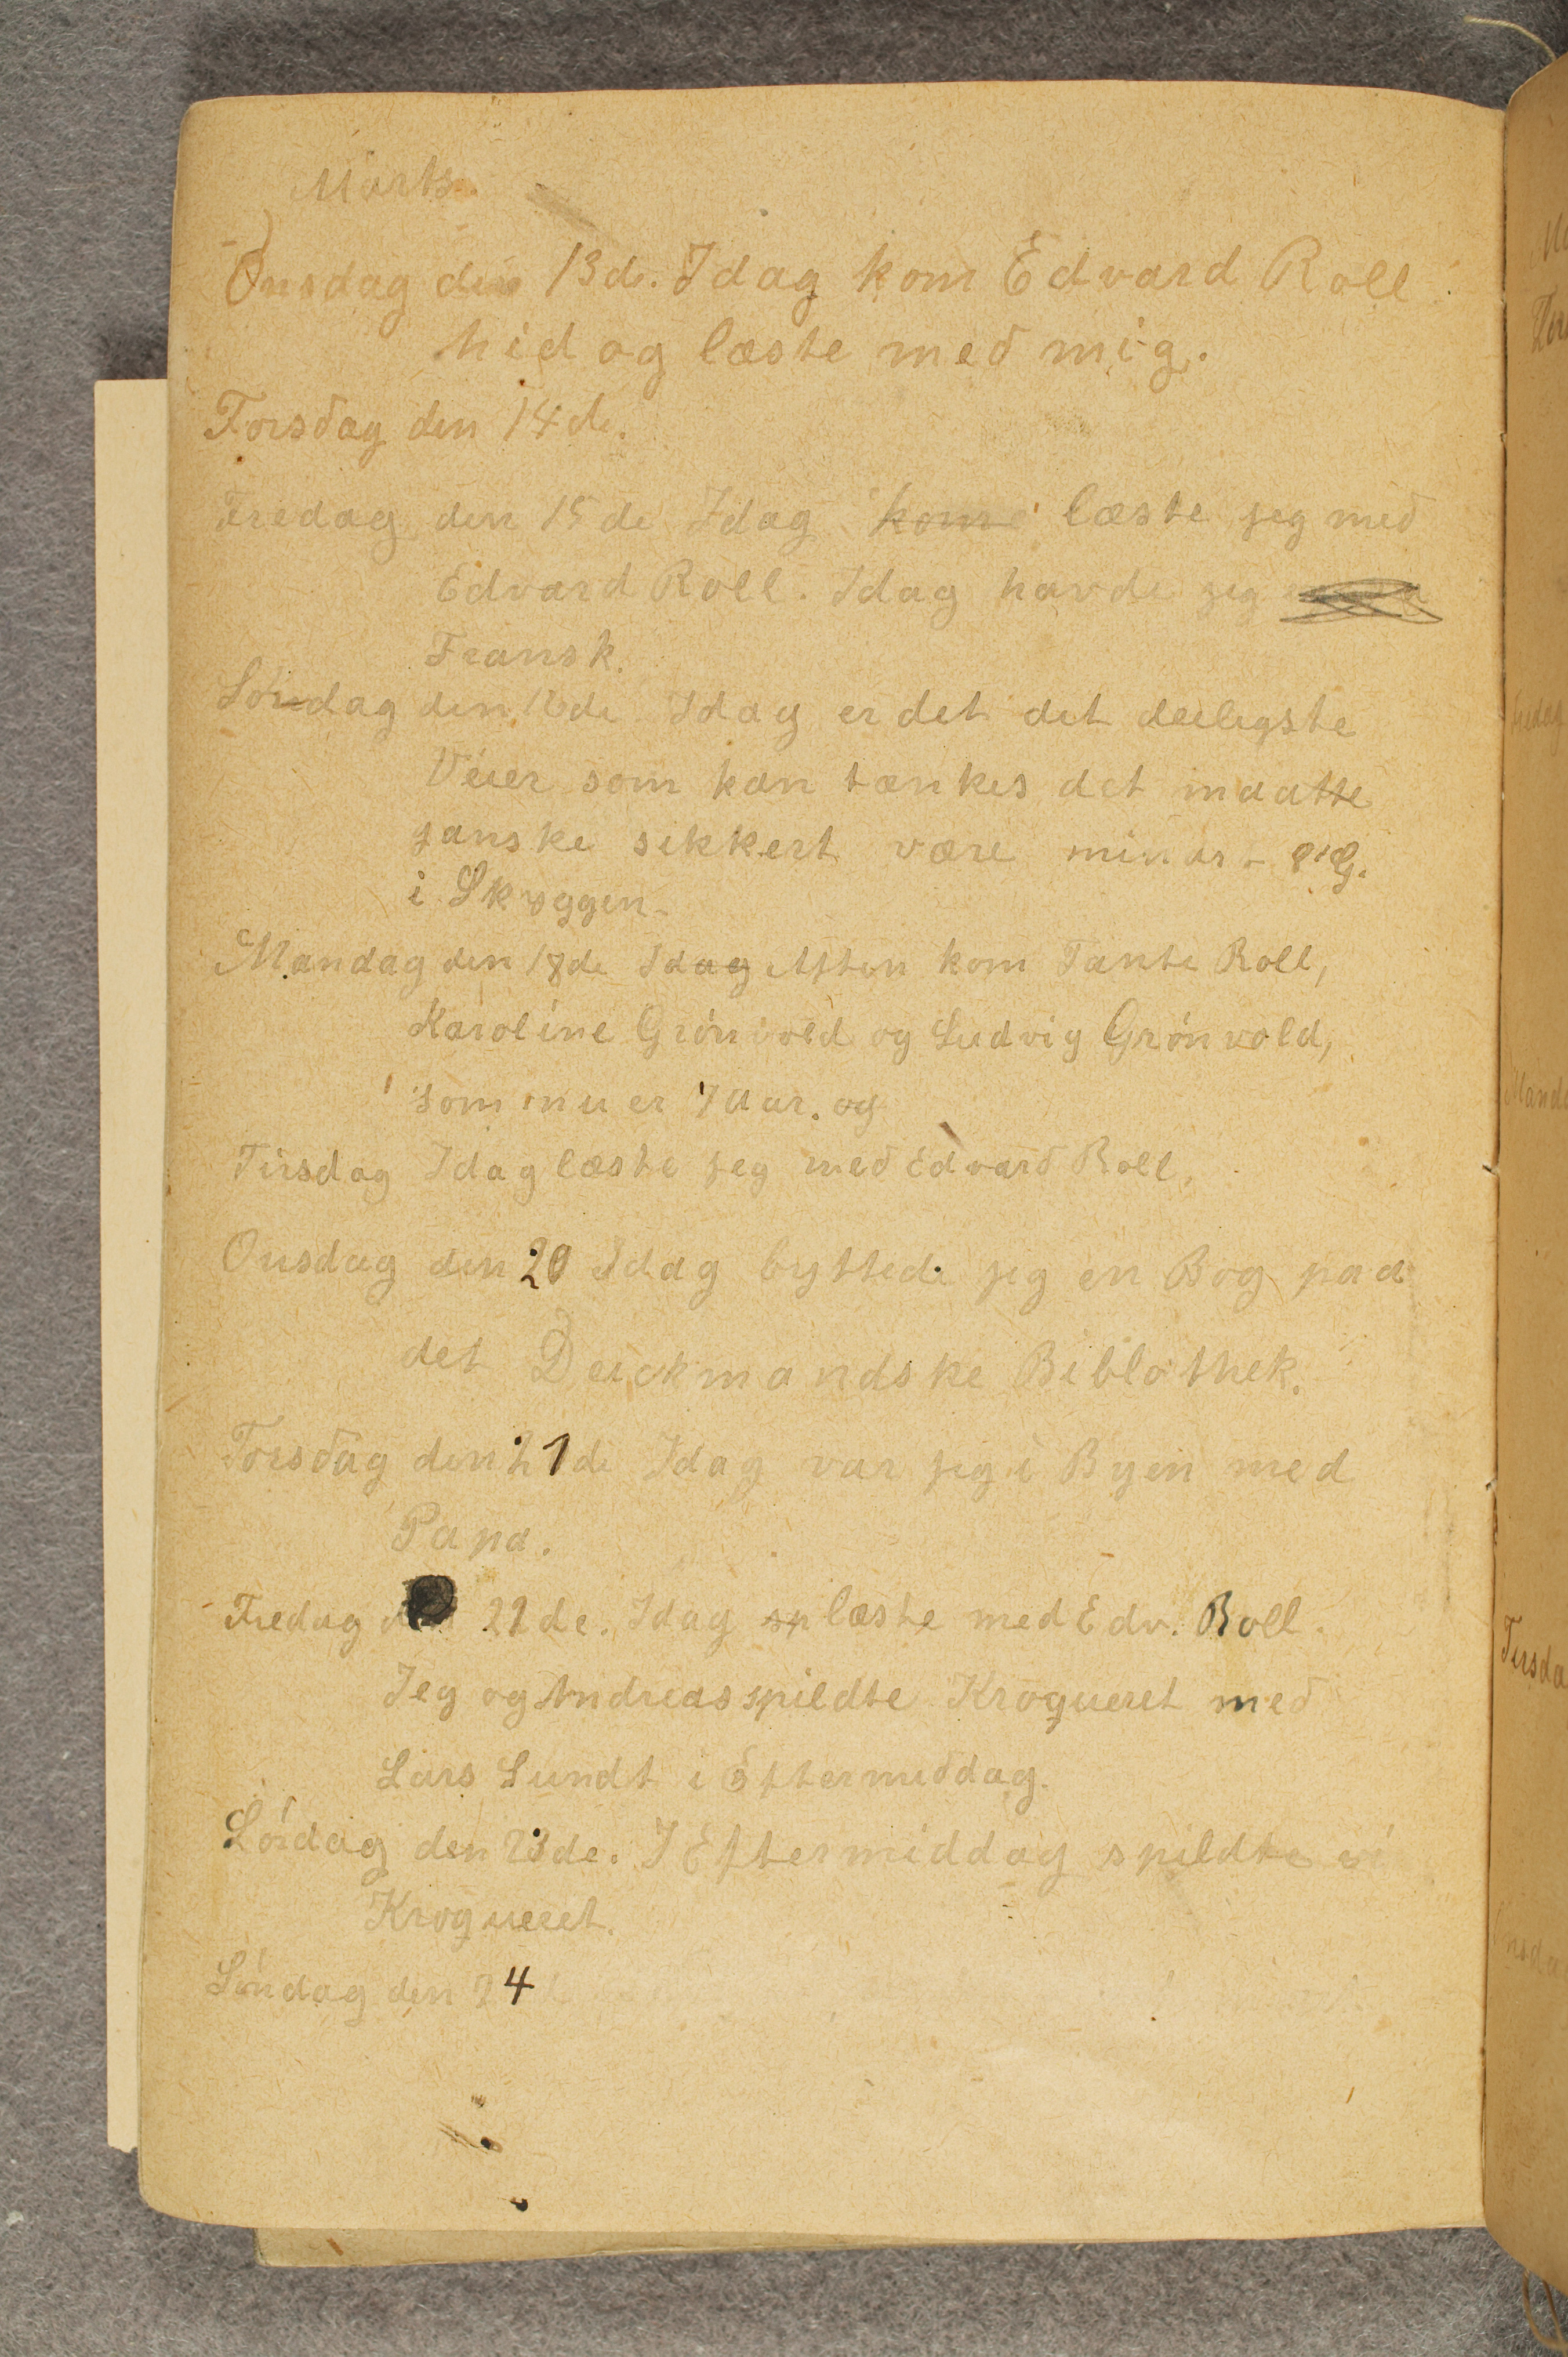 Marts.
Onsdag den 13de. Idag kom Edvard Roll
hid og læste med mig.
Torsdag den 14de.
Fredag den 15de Idag kom læste jeg med
Edvard Roll. Idag havde jeg
Fransk.
Søndag den de Idag er det det deiligste
Veier som kan tænkes det maatte
ganske sikkert være mindst
i Skyggen.
Mandag den 18de Idag Aften kom Tante Roll,
Karoline Grönvold og Ludvig Grönvold,
som nu er 7 aar. og
Tirsdag Idag læste jeg med Edvard Roll,
Onsdag den 20 Idag byttede jeg en Bog paa
det Deickmandske Biblothek.
Torsdag den 21de Idag var jeg i Byen med
Papa.
Fredag 22de. Idag sp læste med Edv. Roll.
Jeg og Andreas spildte Kroqueret med
Lars Sundt i Eftermiddag.
Lördag den 23de. I Eftermiddag spildte vi
Kroqueret.
Söndag den 24